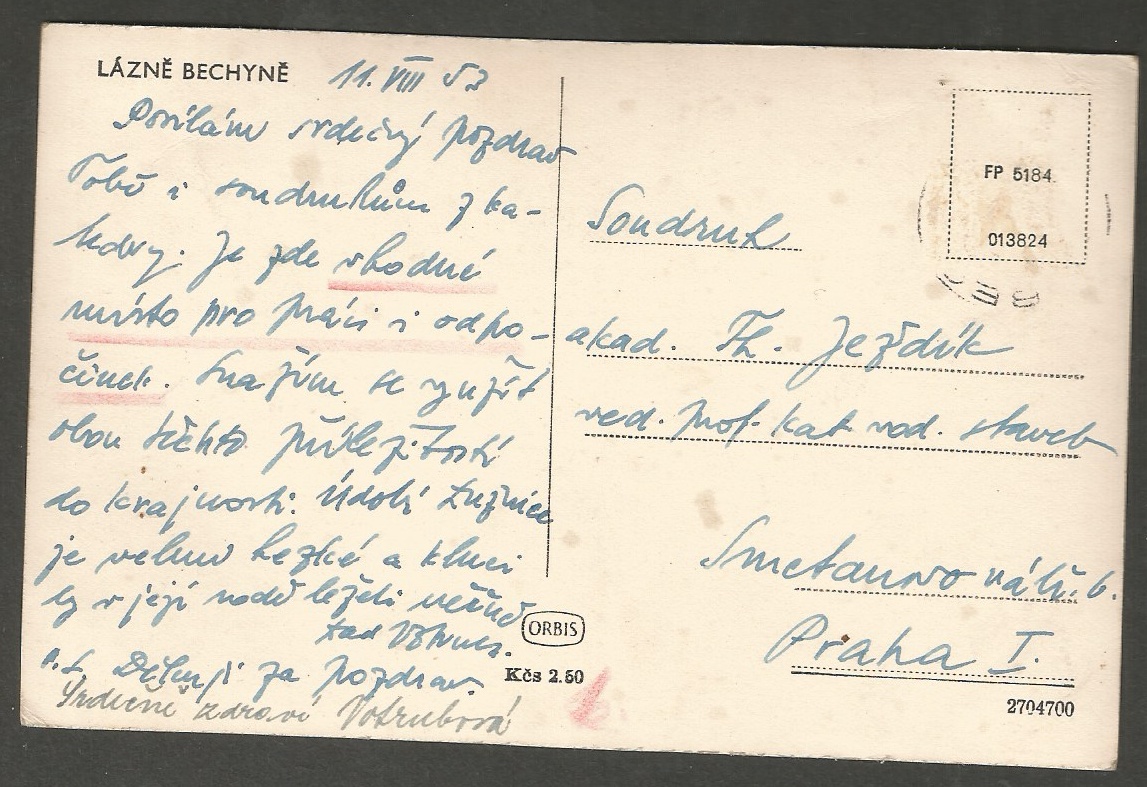 LÁZNĚ BECHYNĚ
11. VIII 53
Posílám srdečný pozdrav
Tobě i soudruhům z ka-
tedry. Je zde vhodné
místo pro práci i odpo-
činek. Snažím se využít
obou těchto příležitostí
do krajnosti. Údolí Lužnice
je velmi hezké a kluci
by v její vodě leželi věčně
Děkuji za pozdrav.
Srdečně zdraví Votrubová
ORBIS
Kčs 2.50
FP 5184
013824
Soudruh
akad. Th. Ježdík
ved. prof. kat. vod. staveb
Smetanovo nábř. 6.
Praha I.
2704700